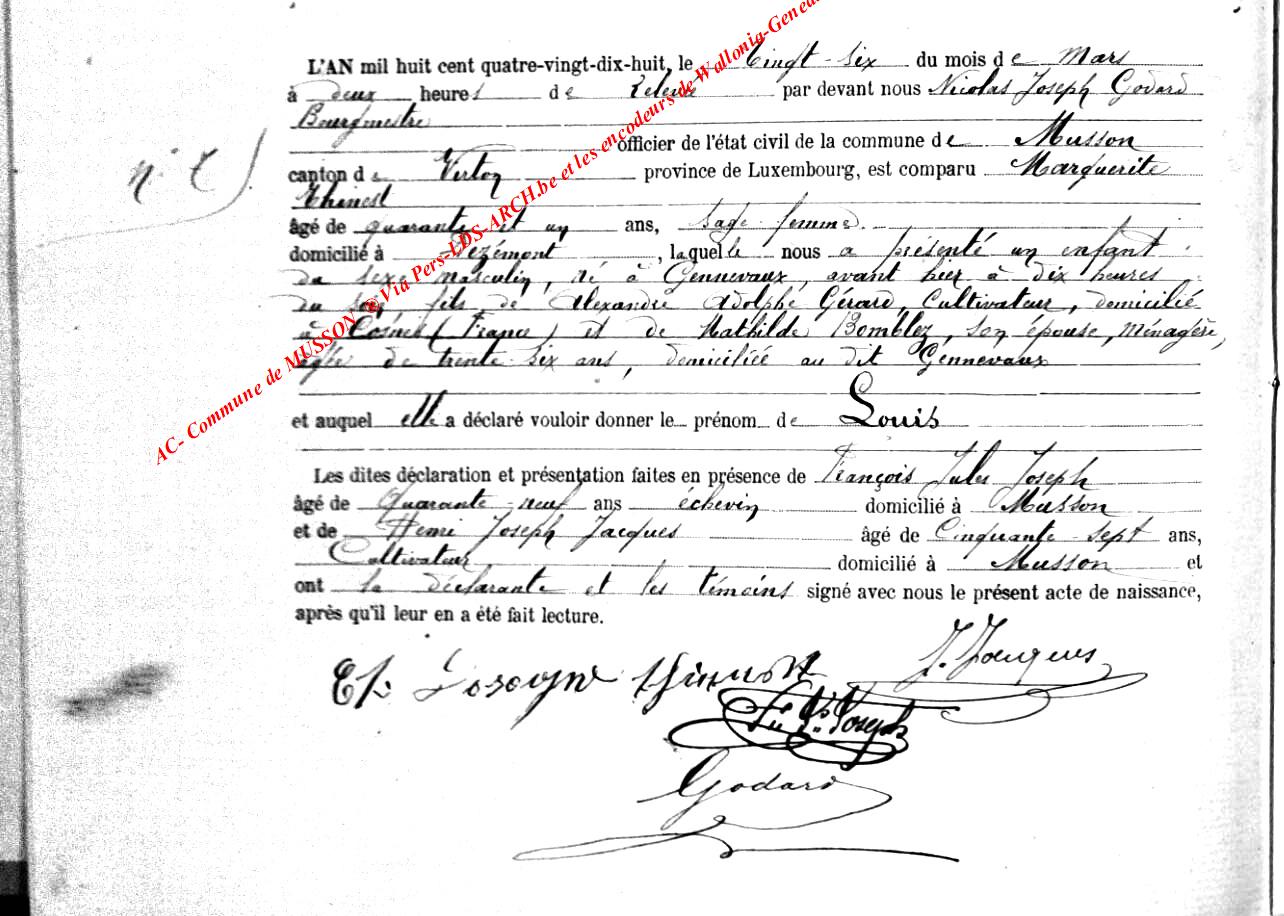 AC- Commune de MUSSON @Via Pers-LDS-ARCH.be et les encodeurs de Wallonia-Genea
L'AN mil huit cent quatre-vingt-dix-huit, le Vingt-six du mois de Mars
à deux heures de relevée par devant nous Nicolas Joseph Godard
Bourgmestre
officier de l'état civil de la commune de Musson
canton de Virton province de Luxembourg, est comparu Marguerite
Thinest
âgé de quarante et un ans, sage femme
domicilié à , laquelle nous a présenté un enfant
du sexe masculin, né à Gennevaux, avant hier à dix heures
du soir fils de Alexandre Adolphe Gérard, Cultivateur, domicilié
à Cosnes (France) et de Mathilde Bomblez, son épouse, Ménagère,
âgée de trente six ans, domiciliée au dit Gennevaux
et auquel elle a déclaré vouloir donner le prénom de Louis
Les dites déclaration et présentation faites en présence de François Jules Joseph
âgé de Quarante-neuf ans échevin domicilié à Musson
et de Henri Joseph Jacques âgé de Cinquante-sept ans,
Cultivateur domicilié à Musson et
ont la déclarante et les témoins signé avec nous le présent acte de naissance,
après qu'il leur en a été fait lecture.
J. Jacques
Joseph
Godard